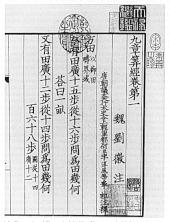 九章算經卷第一
魏劉徽注
唐朝議大夫行太史令上輕車都尉臣李淳風等奉敕注釋
方田以御田疇界域
今有田廣十五步從十六步問為田幾何
荅曰一畝
又有田廣十二步從十四步問為田幾何
百六十八步圖從十四